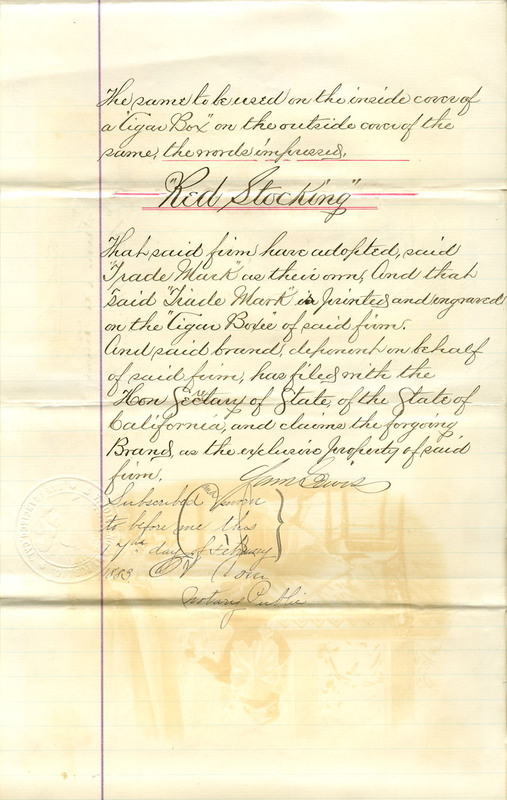 The same to be used on the inside cover of
a "Cigar Box" on the outside cover of the
same, the words impressed,
"Red Stocking"
That said firm have adopted, said
"Trade Mark" as their own, And that
said "Trade Mark" is printed and engraved
on the "Cigar Boxes" of said firm.
And said brand, deponent on behalf
of said firm, has filed with the
Hon Secretary of State, of the State of
California, and claims the forgoing
Brand, as the exclusive property of said
firm.
Subscribed and sworn
to before me this
day of February
1883
Notary Public